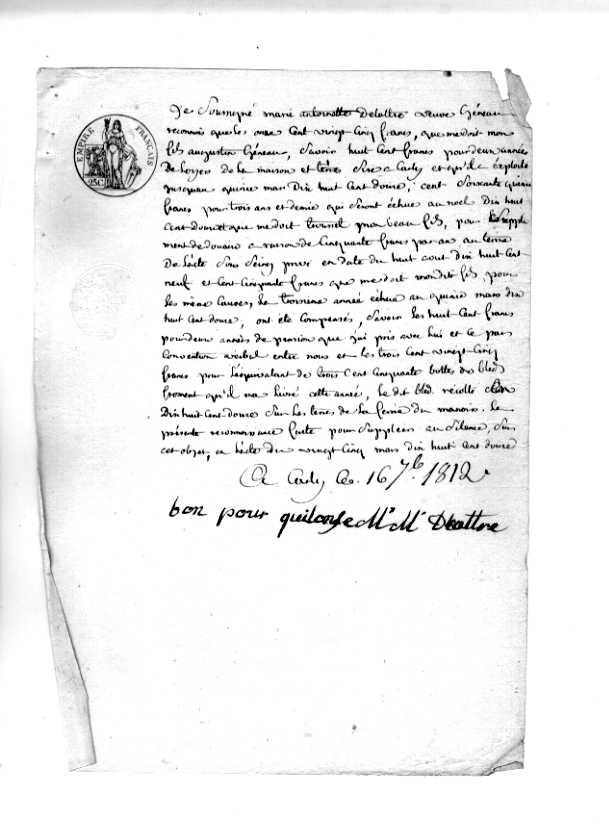 EMPIRE FRANÇAIS
25C
Je Soussigné marie antoinette Delattre veuve Géneau
reconnois que les onze Cent vingt Cinq francs, que me doit mon
fils augustin Géneau, Savoir huit Cent francs pour deux année
de loyer de la maison et terres Sise a Carly et qu'il exploite
jusqu'au quinze mars Dix huit Cent douze, Cent Soixante quinze
francs pour trois ans et demie qui Seront échue au noel Dix huit
Cent douze et que me doit mon beau fils, pour le Supplé
ment de douaire a raison de Cinquante francs par an au terme
De l'acte Sous Seing privé en date du huit aout dix huit Cent
neuf et Cent Cinquante francs que me doit mon dit fils, pour
les même Causes, la troisième année échue au quinze mars dix
huit Cent douze, ont été Compensés, Savoir les huit Cent francs
pour deux années de pension que j'ai pris avec lui et ce par
Convention verbal entre nous et les trois Cent vingt Cinq
francs pour l'équivalant de trois Cent Cinquante bottes de bled
froment qu'il ma livré cette année, le dit bled récolte
Dix huit Cent douze Sur les terres de la ferme du manoir. la
présente reconnoissance faite pour Suppléer au Silence, Sur
cet objet, en l'acte du vingt Cinq mars dix huit Cent douze
A Carly le 16 7b 1812
bon pour quitance M M Delattre